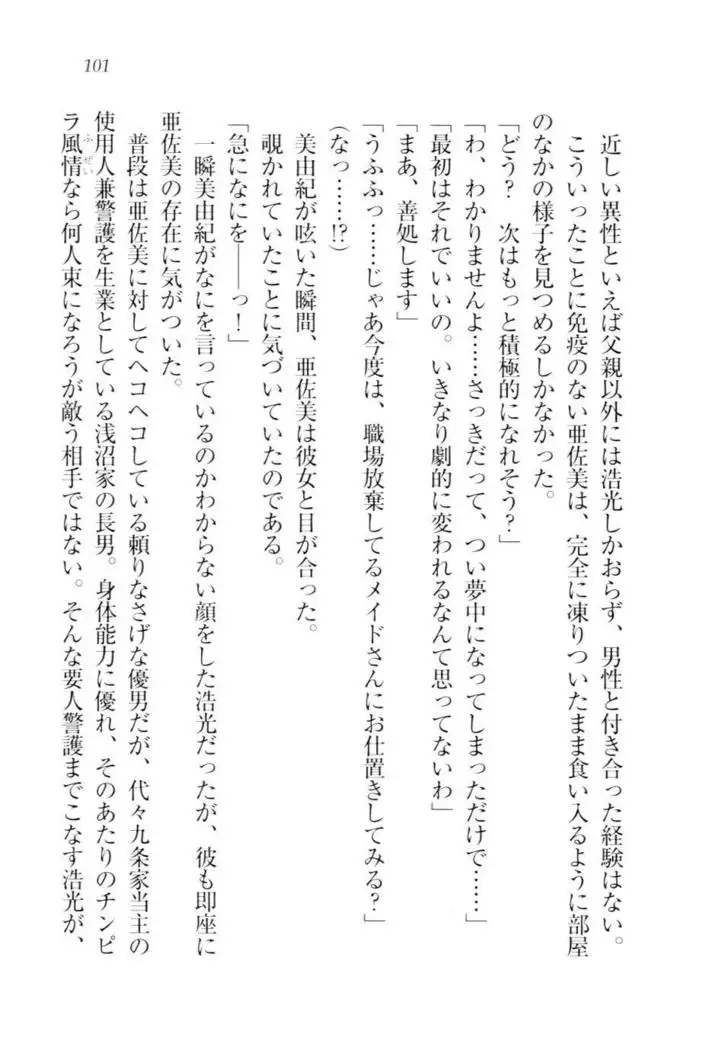 101
近しい異性といえば父親以外には浩光しかおらず、男性と付き合った経験はない。
こういったことに免疫のない亜佐美は、完全に凍りついたまま食い入るように部屋
のなかの様子を見つめるしかなかった。
「どう？　次はもっと積極的になれそう？」
「わ、わかりませんよ……さっきだって、つい夢中になってしまっただけで……」
「最初はそれでいいの。いきなり劇的に変われるなんて思ってないわ」
「まあ、善処します」
「うふふっ……じゃあ今度は、職場放棄してるメイドさんにお仕置きしてみる？」
(なっ……!?)
美由紀が呟いた瞬間、亜佐美は彼女と目が合った。
覗かれていたことに気づいていたのである。
「急になにを――っ！」
一瞬美由紀がなにを言っているのかわからない顔をした浩光だったが、彼も即座に
亜佐美の存在に気がついた。
普段は亜佐美に対してヘコヘコしている頼りなさげな優男だが、代々九条家当主の
使用人兼警護を生業としている浅沼家の長男。身体能力に優れ、そのあたりのチンピ
ラ風情ふぜいなら何人束になろうが敵う相手ではない。そんな要人警護までこなす浩光が、